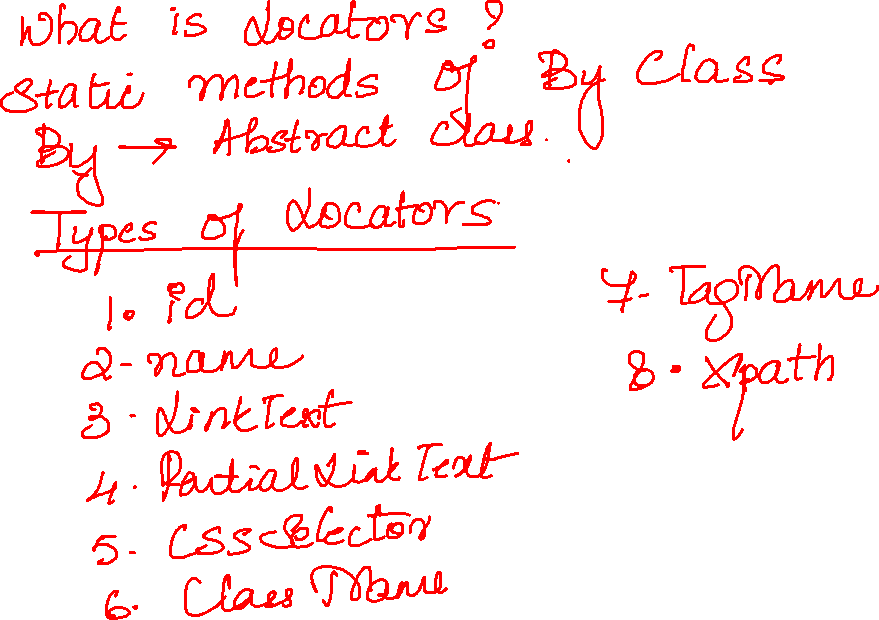 What is Locators ?
Static methods of By Class
By → Abstract class.
Types of Locators
1. id
2- name
3. LinkText
4. Partial Link Text
5. CSS Selector
6. Class Name
7- TagName
8. Xpath